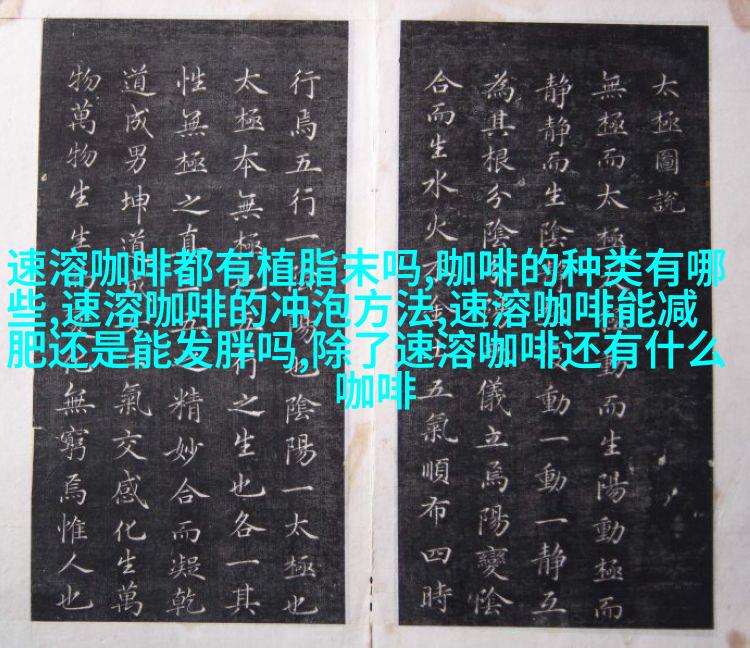 太極圖說
無極而太極動而生陽動極而
静静而生陰動一動一静互
為其根分陰儀立焉陽變陰
合而生水火金土五氣順布四時
行焉五行一陰陽也陰陽一太極也
太極本無極五行之生也各一其
性無極之真五之精妙合而凝乾
道成男坤道氣交感化生萬
物萬物生生無窮焉惟人也
速溶咖啡都有植脂末吗,咖啡的种类有哪
些,速溶咖啡的冲泡方法,速溶咖啡能减
肥还是能发胖吗,除了速溶咖啡还有什么
咖啡